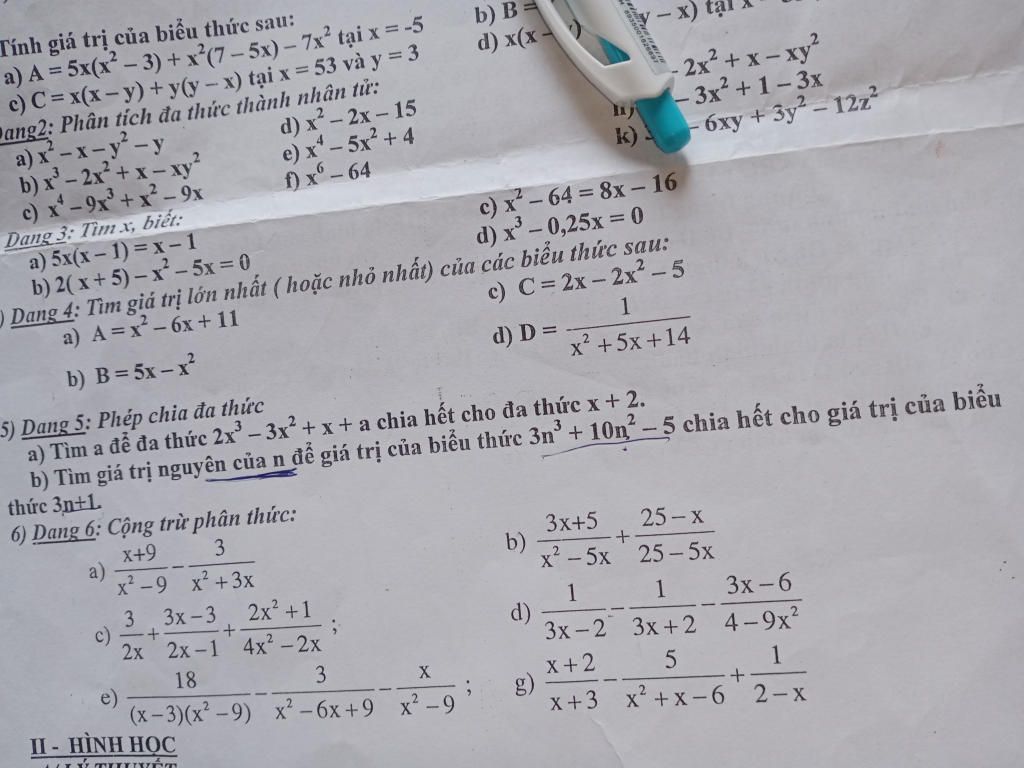 Tính giá trị của biểu thức sau:
a) A = 5x(x² – 3) + x²(7 – 5x) – 7x² tại x = -5
b) B = y – x) tại x
c) C = x(x – y) + y(y – x) tại x = 53 và y = 3
d) x(x –
Dạng2: Phân tích đa thức thành nhân tử:
a) x² – x – y² – y
d) x² – 2x – 15
2x² + x – xy²
b) x³ – 2x² + x – xy²
e) x⁴ – 5x² + 4
h) – 3x² + 1 – 3x
c) x⁴ – 9x³ + x² – 9x
f) x⁶ – 64
k) – 6xy + 3y² – 12z²
Dạng 3: Tìm x, biết:
a) 5x(x – 1) = x – 1
c) x² – 64 = 8x – 16
b) 2( x + 5) – x² – 5x = 0
d) x³ – 0,25x = 0
) Dạng 4: Tìm giá trị lớn nhất ( hoặc nhỏ nhất) của các biểu thức sau:
a) A = x² – 6x + 11
c) C = 2x – 2x² – 5
b) B = 5x – x²
d) D = 1 / (x² + 5x + 14)
5) Dạng 5: Phép chia đa thức
a) Tìm a để đa thức 2x³ – 3x² + x + a chia hết cho đa thức x + 2.
b) Tìm giá trị nguyên của n để giá trị của biểu thức 3n³ + 10n² – 5 chia hết cho giá trị của biểu
thức 3n+1.
6) Dạng 6: Cộng trừ phân thức:
a) (x+9)/(x² – 9) – 3/(x² + 3x)
b) (3x+5)/(x² – 5x) + (25 – x)/(25 – 5x)
c) 3/(2x) + (3x – 3)/(2x – 1) + (2x² + 1)/(4x² – 2x) ;
d) 1/(3x – 2) – 1/(3x + 2) – (3x – 6)/(4 – 9x²)
e) 18/((x – 3)(x² – 9)) – 3/(x² – 6x + 9) – x/(x² – 9) ;
g) (x + 2)/(x + 3) – 5/(x² + x – 6) + 1/(2 – x)
II - HÌNH HỌC
LÝ THUYẾT